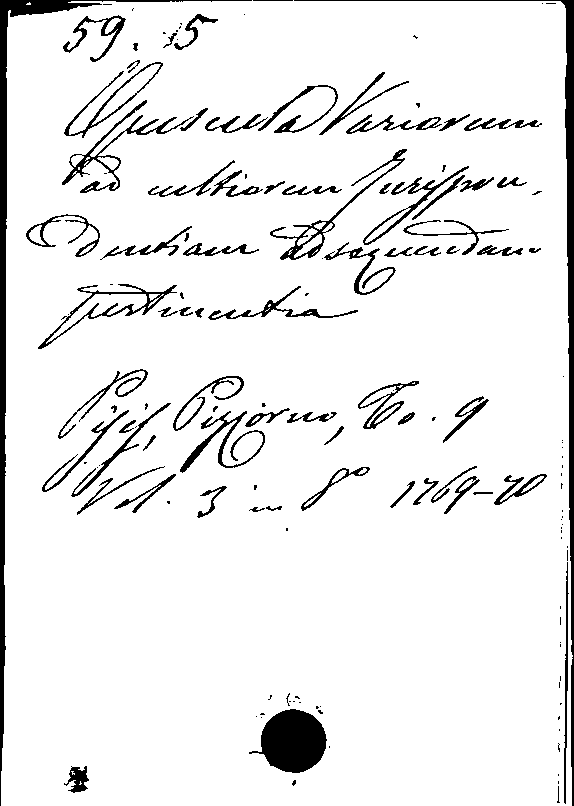 59. 15
Opuscula Variorum
ad cultiorem Jurispru-
dentiam adsequendam
pertinentia
Pisis, Pizzorno, To. 9
Vol. 3 in 8° 1769-70